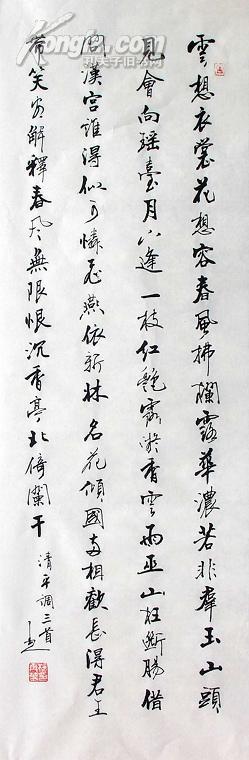 雲想衣裳花想容春風拂欄露華濃若非羣玉山頭
見會向瑤臺月下逢一枝紅艷露凝香雲雨巫山枉斷腸借
問漢宮誰得似可憐飛燕依新妝名花傾國兩相歡長得君王
帶笑看解釋春風無限恨沉香亭北倚闌干
清平調三首
Kongfz.com
孔夫子旧书网